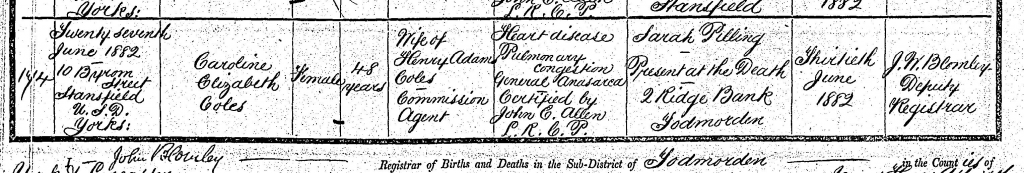 Yorks:
L. R. C. P.
Stansfield
1882
194
Twenty seventh
June 1882
10 Byrom
Street
Stansfield
U. S. D.
Yorks:
Caroline
Elizabeth
Coles
Female
48
years
Wife of
Henry Adams
Coles
Commission
Agent
Heart disease
Pulmonary
congestion
General Anasarca
Certified by
John E. Allen
L. R. C. P.
Sarah Pilling
Present at the Death
2 Ridge Bank
Todmorden
Thirtieth
June
1882
J. W. Blomley
Deputy
Registrar
John Blomley
Registrar of Births and Deaths in the Sub-District of Todmorden
in the Counties of